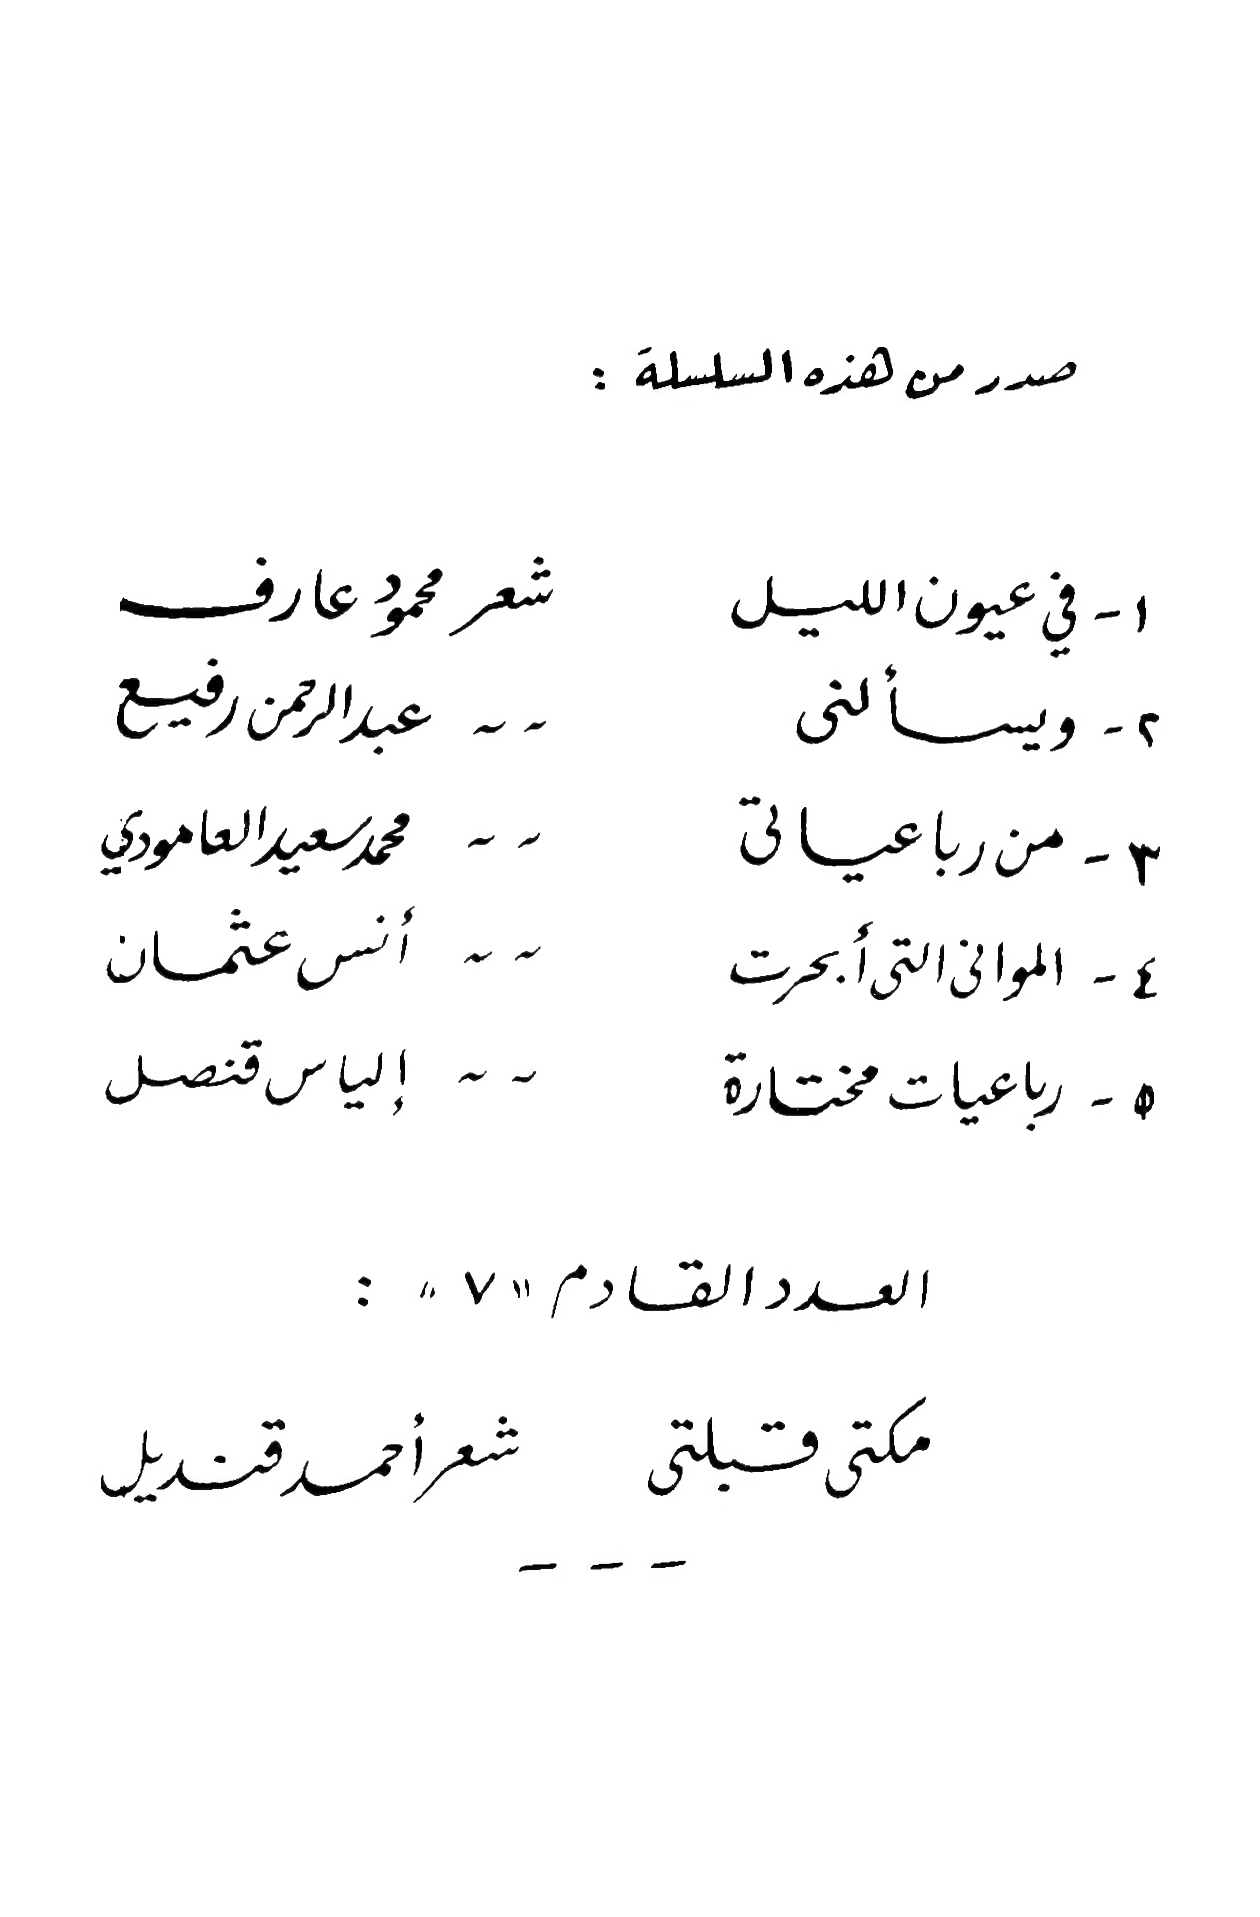 صدر من هذه السلسلة :
١ - في عيون الليل شعر محمود عارف
٢ - ويسألنى ~ ~ عبدالرحمن رفيع
٣ - من رباعياتى ~ ~ محمد سعيد العامودي
٤ - الموانى التى أبحرت ~ ~ أنس عثمان
٥ - رباعيات مختارة ~ ~ إلياس قنصل
العدد القادم "٧" :
مكتى قبلتى شعر أحمد قنديل
- - -